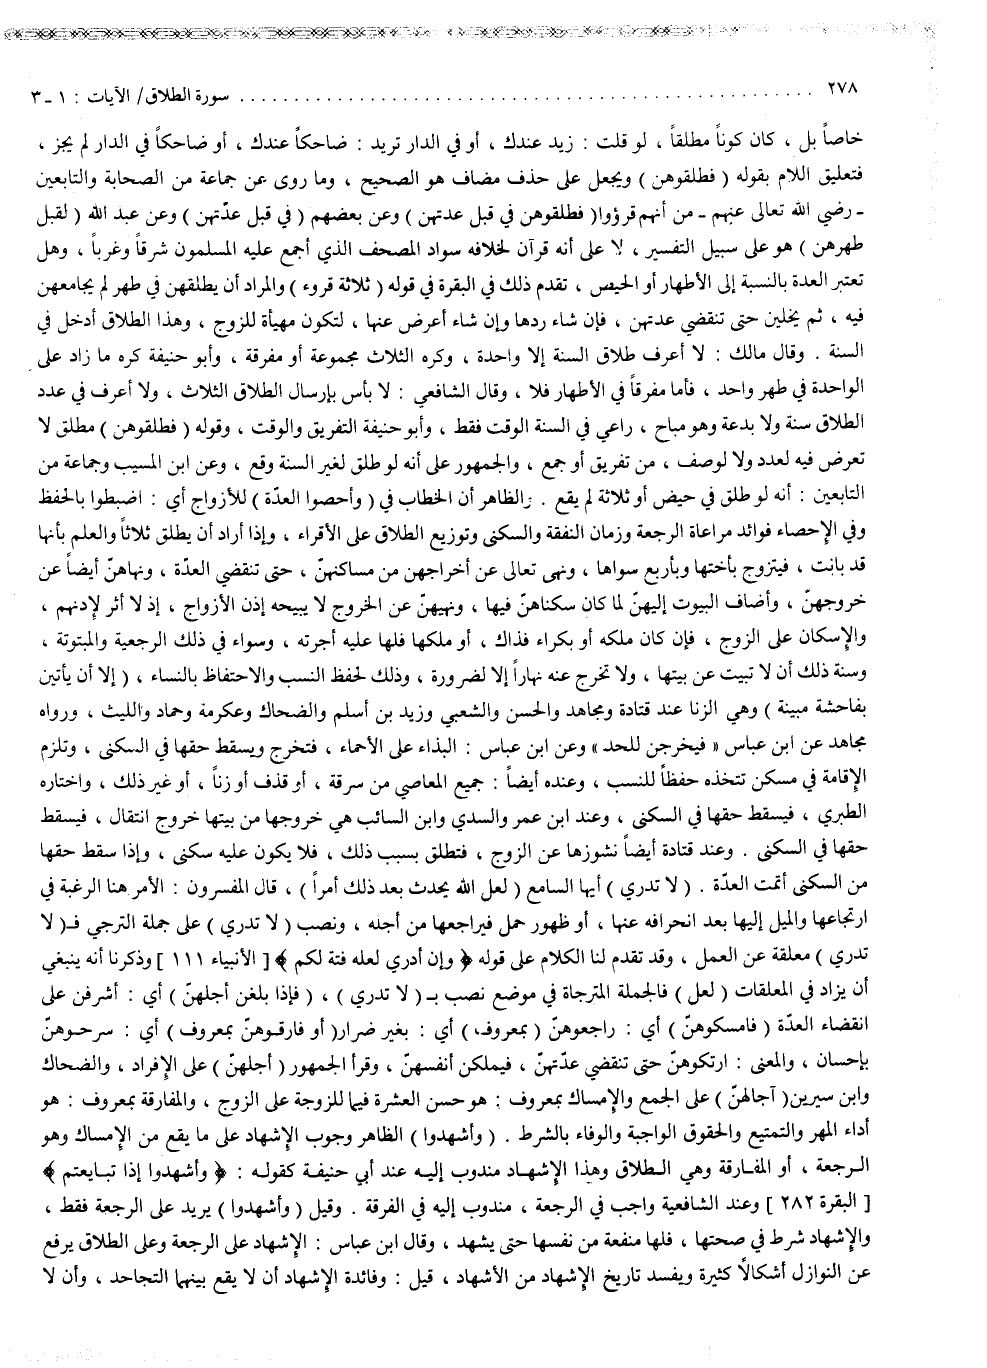 ٢٧٨ ........................................................ سورة الطلاق/ الآيات : ١ - ٣
خاصاً بل ، كان كوناً مطلقاً ، لو قلت : زيد عندك ، أو في الدار تريد : ضاحكاً عندك ، أو ضاحكاً في الدار لم يجز ،
فتعليق اللام بقوله ( فطلقوهن ) ويجعل على حذف مضاف هو الصحيح ، وما روى عن جماعة من الصحابة والتابعين
ـ رضي الله تعالى عنهم ـ من أنهم قرؤوا( فطلقوهن في قبل عدتهن ) وعن بعضهم ( في قبل عدّتهن ) وعن عبد الله ( لقبل
طهرهن ) هو على سبيل التفسير ، لا على أنه قرآن لخلافه سواد المصحف الذي أجمع عليه المسلمون شرقاً وغرباً ، وهل
تعتبر العدة بالنسبة إلى الأطهار أو الحيض ، تقدم ذلك في البقرة في قوله ( ثلاثة قروء ) والمراد أن يطلقهن في طهر لم يجامعهن
فيه ، ثم يخلين حتى تنقضي عدتهن ، فإن شاء ردها وإن شاء أعرض عنها ، لتكون مهيأة للزوج ، وهذا الطلاق أدخل في
السنة . وقال مالك : لا أعرف طلاق السنة إلا واحدة ، وكره الثلاث مجموعة أو مفرقة ، وأبو حنيفة كره ما زاد على
الواحدة في طهر واحد ، فأما مفرقاً في الأطهار فلا ، وقال الشافعي : لا بأس بإرسال الطلاق الثلاث ، ولا أعرف في عدد
الطلاق سنة ولا بدعة وهو مباح ، راعي في السنة الوقت فقط ، وأبو حنيفة التفريق والوقت ، وقوله ( فطلقوهن ) مطلق لا
تعرض فيه لعدد ولا لوصف ، من تفريق أو جمع ، والجمهور على أنه لو طلق لغير السنة وقع ، وعن ابن المسيب وجماعة من
التابعين : أنه لو طلق في حيض أو ثلاثة لم يقع . والظاهر أن الخطاب في ( وأحصوا العدّة ) للأزواج أي : اضبطوا بالحفظ
وفي الإحصاء فوائد مراعاة الرجعة وزمان النفقة والسكنى وتوزيع الطلاق على الأقراء ، وإذا أراد أن يطلق ثلاثاً والعلم بأنها
قد بانت ، فيتزوج بأختها وبأربع سواها ، ونهى تعالى عن أخراجهن من مساكنهنّ ، حتى تنقضي العدّة ، ونهاهنّ أيضاً عن
خروجهنّ ، وأضاف البيوت إليهنّ لما كان سكناهنّ فيها ، ونهيهنّ عن الخروج لا يبيحه إذن الأزواج ، إذ لا أثر لإدنهم ،
والإسكان على الزوج ، فإن كان ملكه أو بكراء فذاك ، أو ملكها فلها عليه أجرته ، وسواء في ذلك الرجعية والمبتوتة ،
وسنة ذلك أن لا تبيت عن بيتها ، ولا تخرج عنه نهاراً إلا لضرورة ، وذلك لحفظ النسب والاحتفاظ بالنساء ، ( إلا أن يأتين
بفاحشة مبينة ) وهي الزنا عند قتادة ومجاهد والحسن والشعبي وزيد بن أسلم والضحاك وعكرمة وحماد والليث ، ورواه
مجاهد عن ابن عباس « فيخرجن للحد » وعن ابن عباس : البذاء على الأحماء ، فتخرج ويسقط حقها في السكنى ، وتلزم
الإقامة في مسكن تتخذه حفظاً للنسب ، وعنده أيضاً : جميع المعاصي من سرقة ، أو قذف أو زناً ، أو غير ذلك ، واختاره
الطبري ، فيسقط حقها في السكنى ، وعند ابن عمر والسدي وابن السائب هي خروجها من بيتها خروج انتقال ، فيسقط
حقها في السكنى . وعند قتادة أيضاً نشوزها عن الزوج ، فتطلق بسبب ذلك ، فلا يكون عليه سكنى ، وإذا سقط حقها
من السكنى أتمت العدّة . ( لا تدري ) أيها السامع ( لعل الله يحدث بعد ذلك أمراً ) ، قال المفسرون : الأمر هنا الرغبة في
ارتجاعها والميل إليها بعد انحرافه عنها ، أو ظهور حمل فيراجعها من أجله ، ونصب ( لا تدري ) على جملة الترجي فـ( لا
تدري ) معلقة عن العمل ، وقد تقدم لنا الكلام على قوله ﴿ وإن أدري لعله فتة لكم ﴾ [ الأنبياء ١١١ ] وذكرنا أنه ينبغي
أن يزاد في المعلقات ( لعل ) فالجملة المترجاة في موضع نصب بـ ( لا تدري ) ، ( فإذا بلغن أجلهنّ ) أي : أشرفن على
انقضاء العدّة ( فامسكوهنّ ) أي : راجعوهنّ ( بمعروف ) أي : بغير ضرار( أو فارقوهنّ بمعروف ) أي : سرحوهنّ
بإحسان ، والمعنى : ارتكوهنّ حتى تنقضي عدّتهنّ ، فيملكن أنفسهنّ ، وقرأ الجمهور ( أجلهنّ ) على الإفراد ، والضحاك
وابن سيرين( آجالهنّ ) على الجمع والإمساك بمعروف : هو حسن العشرة فيما للزوجة على الزوج ، والمفارقة بمعروف : هو
أداء المهر والتمتيع والحقوق الواجبة والوفاء بالشرط . ( وأشهدوا ) الظاهر وجوب الإشهاد على ما يقع من الإمساك وهو
الرجعة ، أو المفارقة وهي الطلاق وهذا الإشهاد مندوب إليه عند أبي حنيفة كقوله : ﴿ وأشهدوا إذا تبايعتم ﴾
[ البقرة ٢٨٢ ] وعند الشافعية واجب في الرجعة ، مندوب إليه في الفرقة . وقيل ( وأشهدوا ) يريد على الرجعة فقط ،
والإشهاد شرط في صحتها ، فلها منفعة من نفسها حتى يشهد ، وقال ابن عباس : الإشهاد على الرجعة وعلى الطلاق يرفع
عن النوازل أشكالاً كثيرة ويفسد تاريخ الإشهاد من الأشهاد ، قيل : وفائدة الإشهاد أن لا يقع بينهما التجاحد ، وأن لا